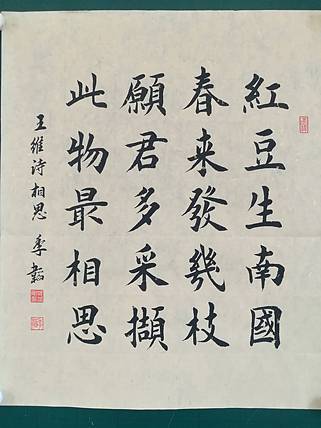 紅豆生南國
春来發幾枝
願君多采擷
此物最相思
王維诗相思 季